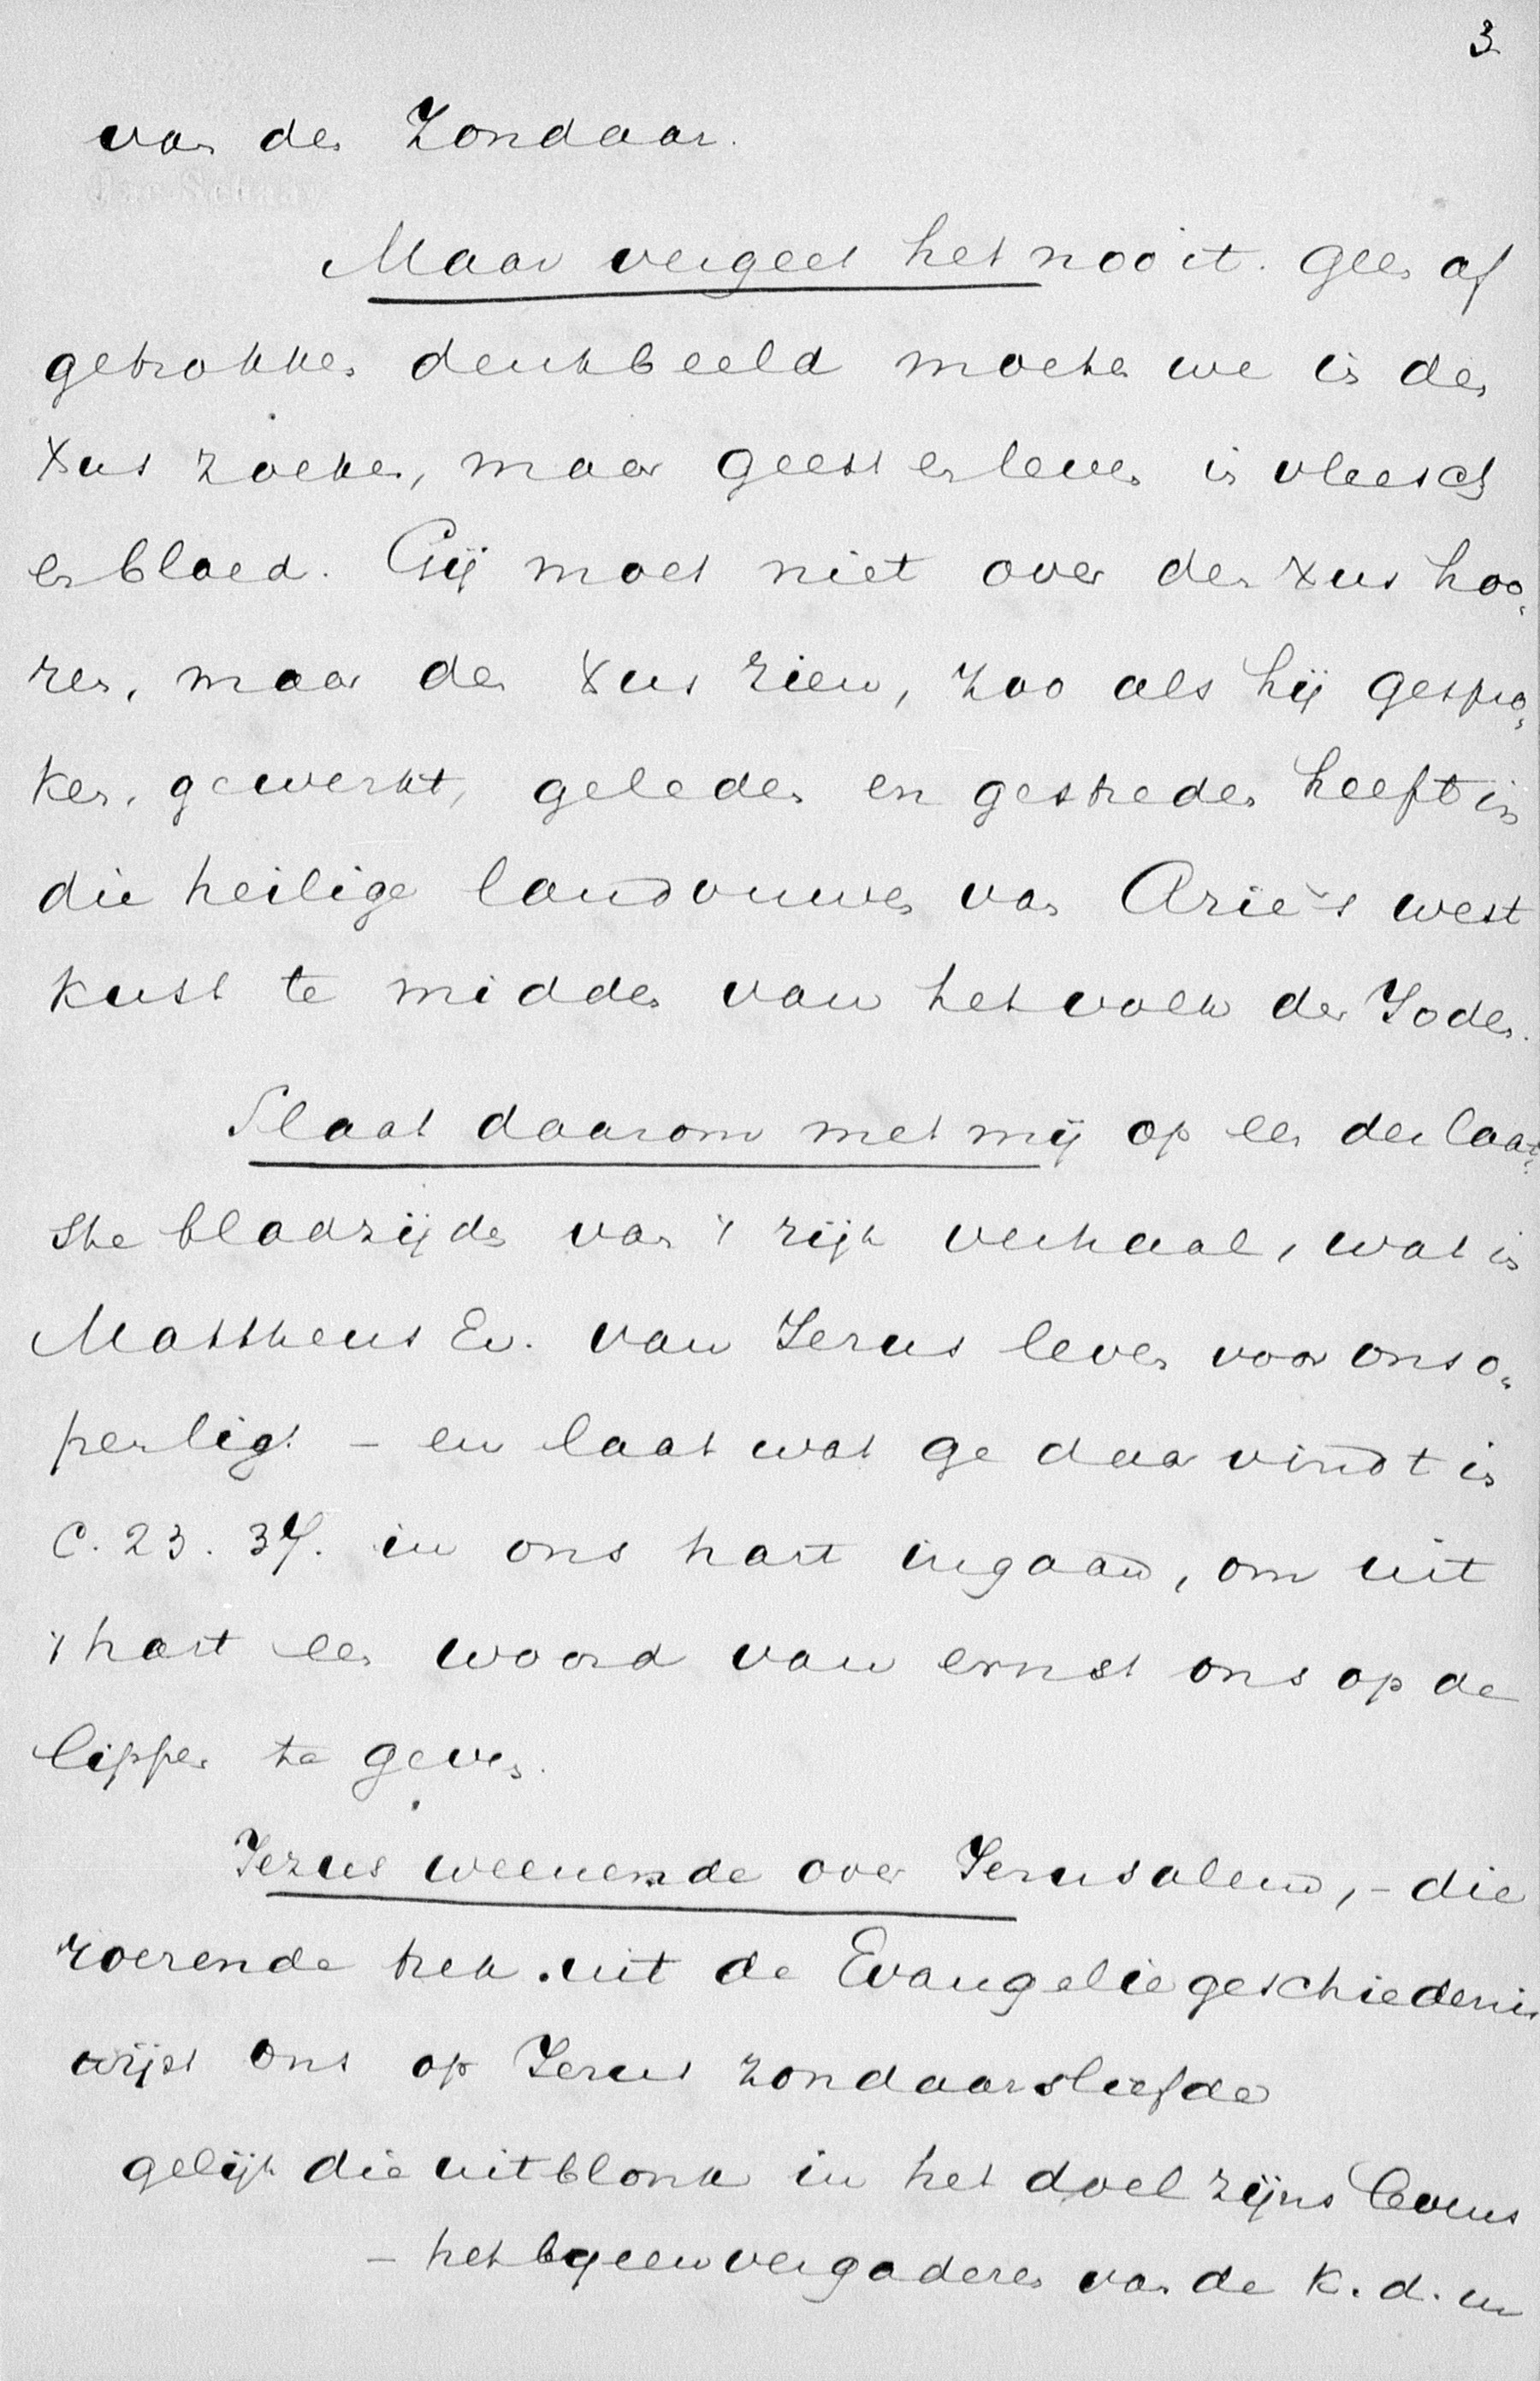 3
van den Zondaar.
Maar vergeet het nooit. Geen af
getrokken denkbeeld moeten we in den
Xus zoeken, maar geest en leven in vleesch
en bloed. Gij moet niet over den Xus hoo„
ren, maar den Xus zien, zoo als hij gespro„
ken, gewerkt, geleden en gestreden heeft in
die heilige landouwen van Azië's west
kust te midden van het volk der Joden.
Slaat daarom met mij op een der laat„
ste bladzijden van 't rijk verhaal, wat in
Mattheus Ev. van Jezus leven voor ons o„
pen ligt – en laat wat ge daar vindt in
C. 23. 37. in ons hart ingaan, om uit
't hart een woord van ernst ons op de
lippen te geven.
Jezus weenende over Jerusalem, – die
roerende trek uit de Evangeliegeschiedenis
wijst ons op Jezus zondaarsliefde
gelijk die uitblonk in het doel zijns levens
– het bijeenvergaderen van de k. d. m